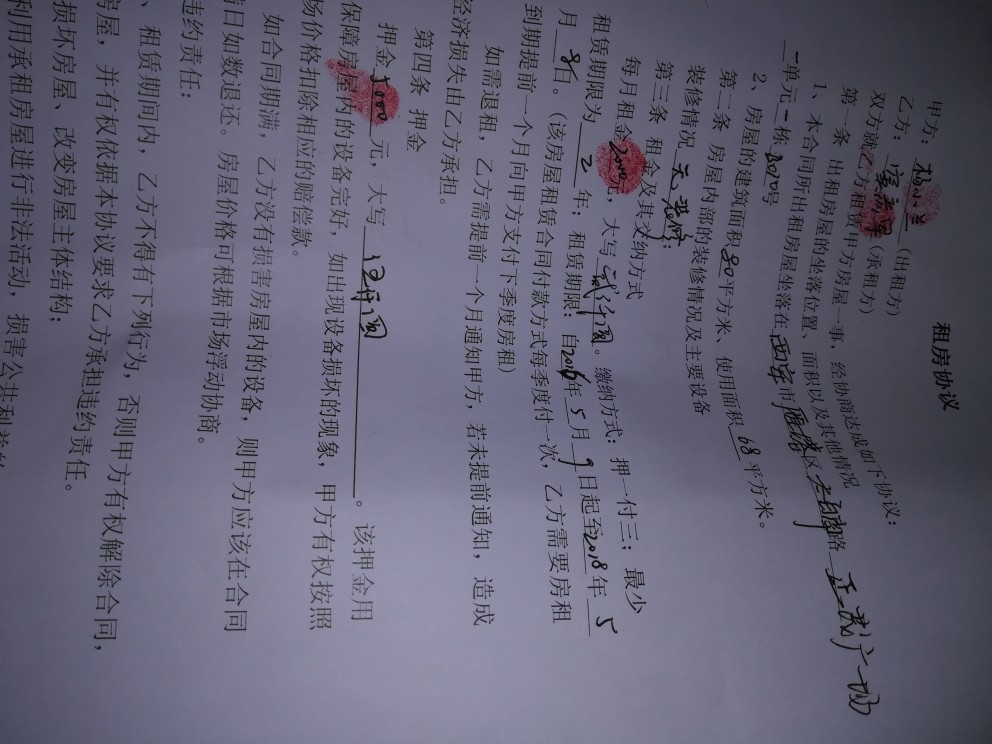 租房协议
甲方：（出租方）
乙方：（承租方）
双方就乙方租赁甲方房屋一事，经协商达成如下协议：
第一条 出租房屋的坐落位置、面积以及其他情况
1、本合同所出租房屋坐落在西安市雁塔区路
一单元一栋2020号
2、房屋的建筑面积80平方米、使用面积68平方米。
第二条 房屋内部的装修情况及主要设备
装修情况 无装修；
第三条 租金及其交纳方式
每月租金2000元，大写贰仟圆。缴纳方式：押一付三；最少
租赁期限为2年；租赁期限：自2016年5月9日起至2018年5
月8日。（该房屋租赁合同付款方式每季度付一次，乙方需要房租
到期提前一个月向甲方支付下季度房租）
如需退租，乙方需提前一个月通知甲方，若未提前通知，造成
经济损失由乙方承担。
第四条 押金
押金元，大写。该押金用
保障房屋内的设备完好，如出现设备损坏的现象，甲方有权按照
场价格扣除相应的赔偿款。
如合同期满，乙方没有损害房屋内的设备，则甲方应该在合同
日如数退还。房屋价格可根据市场浮动协商。
违约责任：
、租赁期间内，乙方不得有下列行为，否则甲方有权解除合同，
房屋，并有权依据本协议要求乙方承担违约责任。
损坏房屋、改变房屋主体结构；
利用承租房屋进行非法活动，损害公共利益的